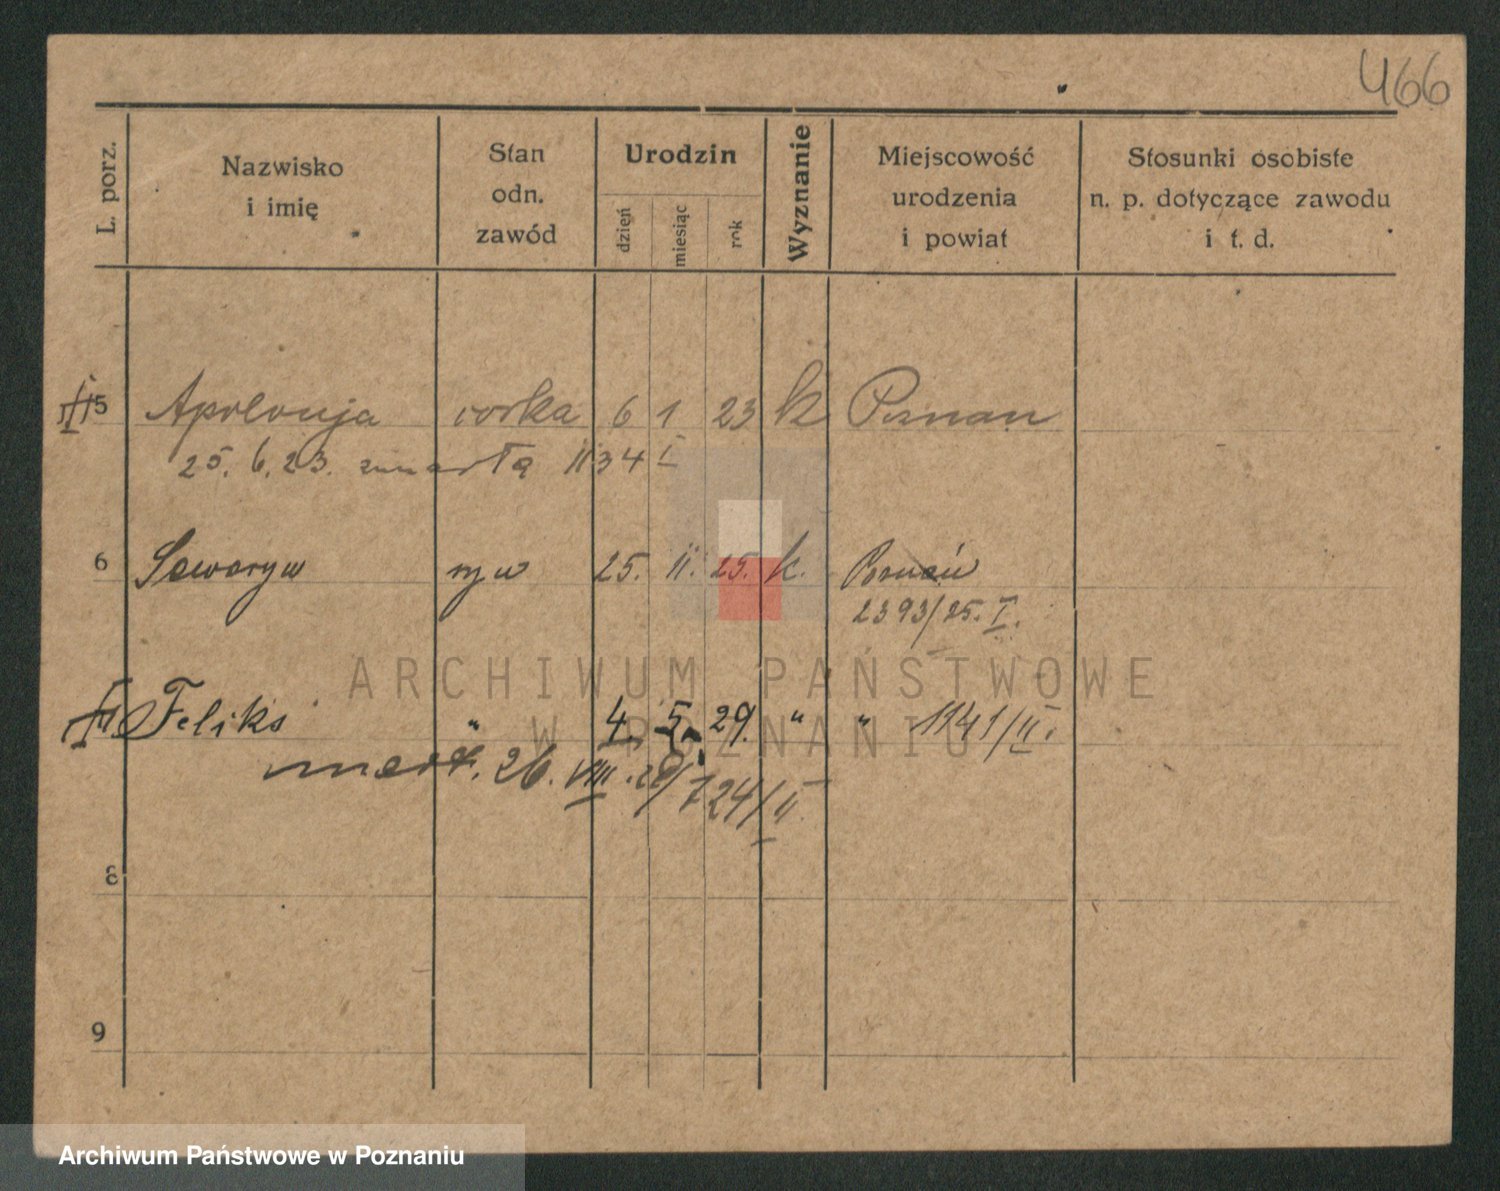 466
L. porz.
Nazwisko
i imię
Stan
odn.
zawód
Urodzin
dzień
miesiąc
rok
Wyznanie
Miejscowość
urodzenia
i powiat
Stosunki osobiste
n. p. dotyczące zawodu
i t. d.
5 Apolonja corka 6 1 23 k Poznan
25. 6. 23. zmarła 1134 I
6 Seweryn syn 25. 11. 25. k. Poznań
2393/25. I.
Feliks " 4. 5. 29. " " 1141/II.
zmarł. 26. VIII. 29/724/II
8
9
ARCHIWUM PAŃSTWOWE
W POZNANIU
Archiwum Państwowe w Poznaniu